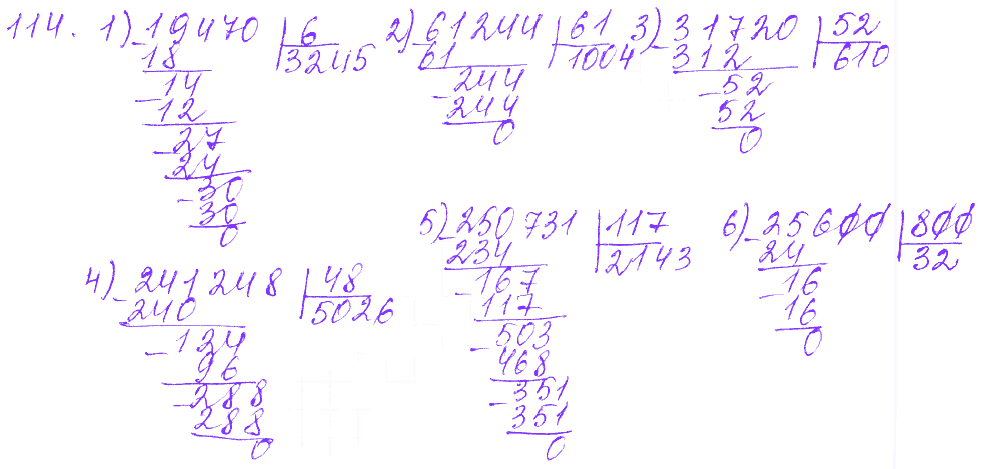 114. 1) 19470 | 6
- 18 | 3245
14
- 12
27
- 24
30
- 30
0
2) 61244 | 61
- 61 | 1004
244
- 244
0
3) 31720 | 52
- 312 | 610
52
- 52
0
4) 241248 | 48
- 240 | 5026
124
- 96
288
- 288
0
5) 250731 | 117
- 234 | 2143
167
- 117
503
- 468
351
- 351
0
6) 25600 | 800
- 24 | 32
16
- 16
0